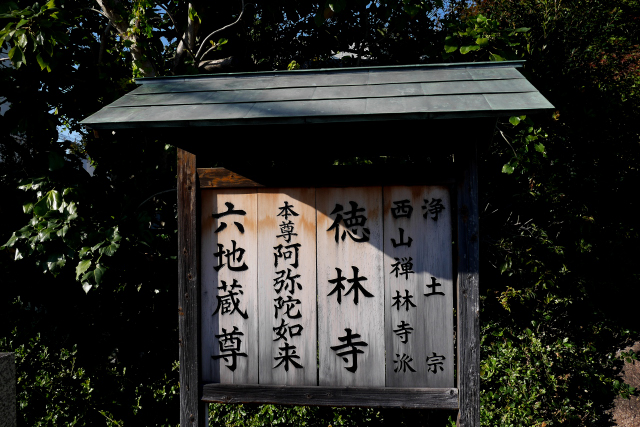 浄土宗
西山禅林寺派
徳林寺
本尊阿弥陀如来
六地蔵尊